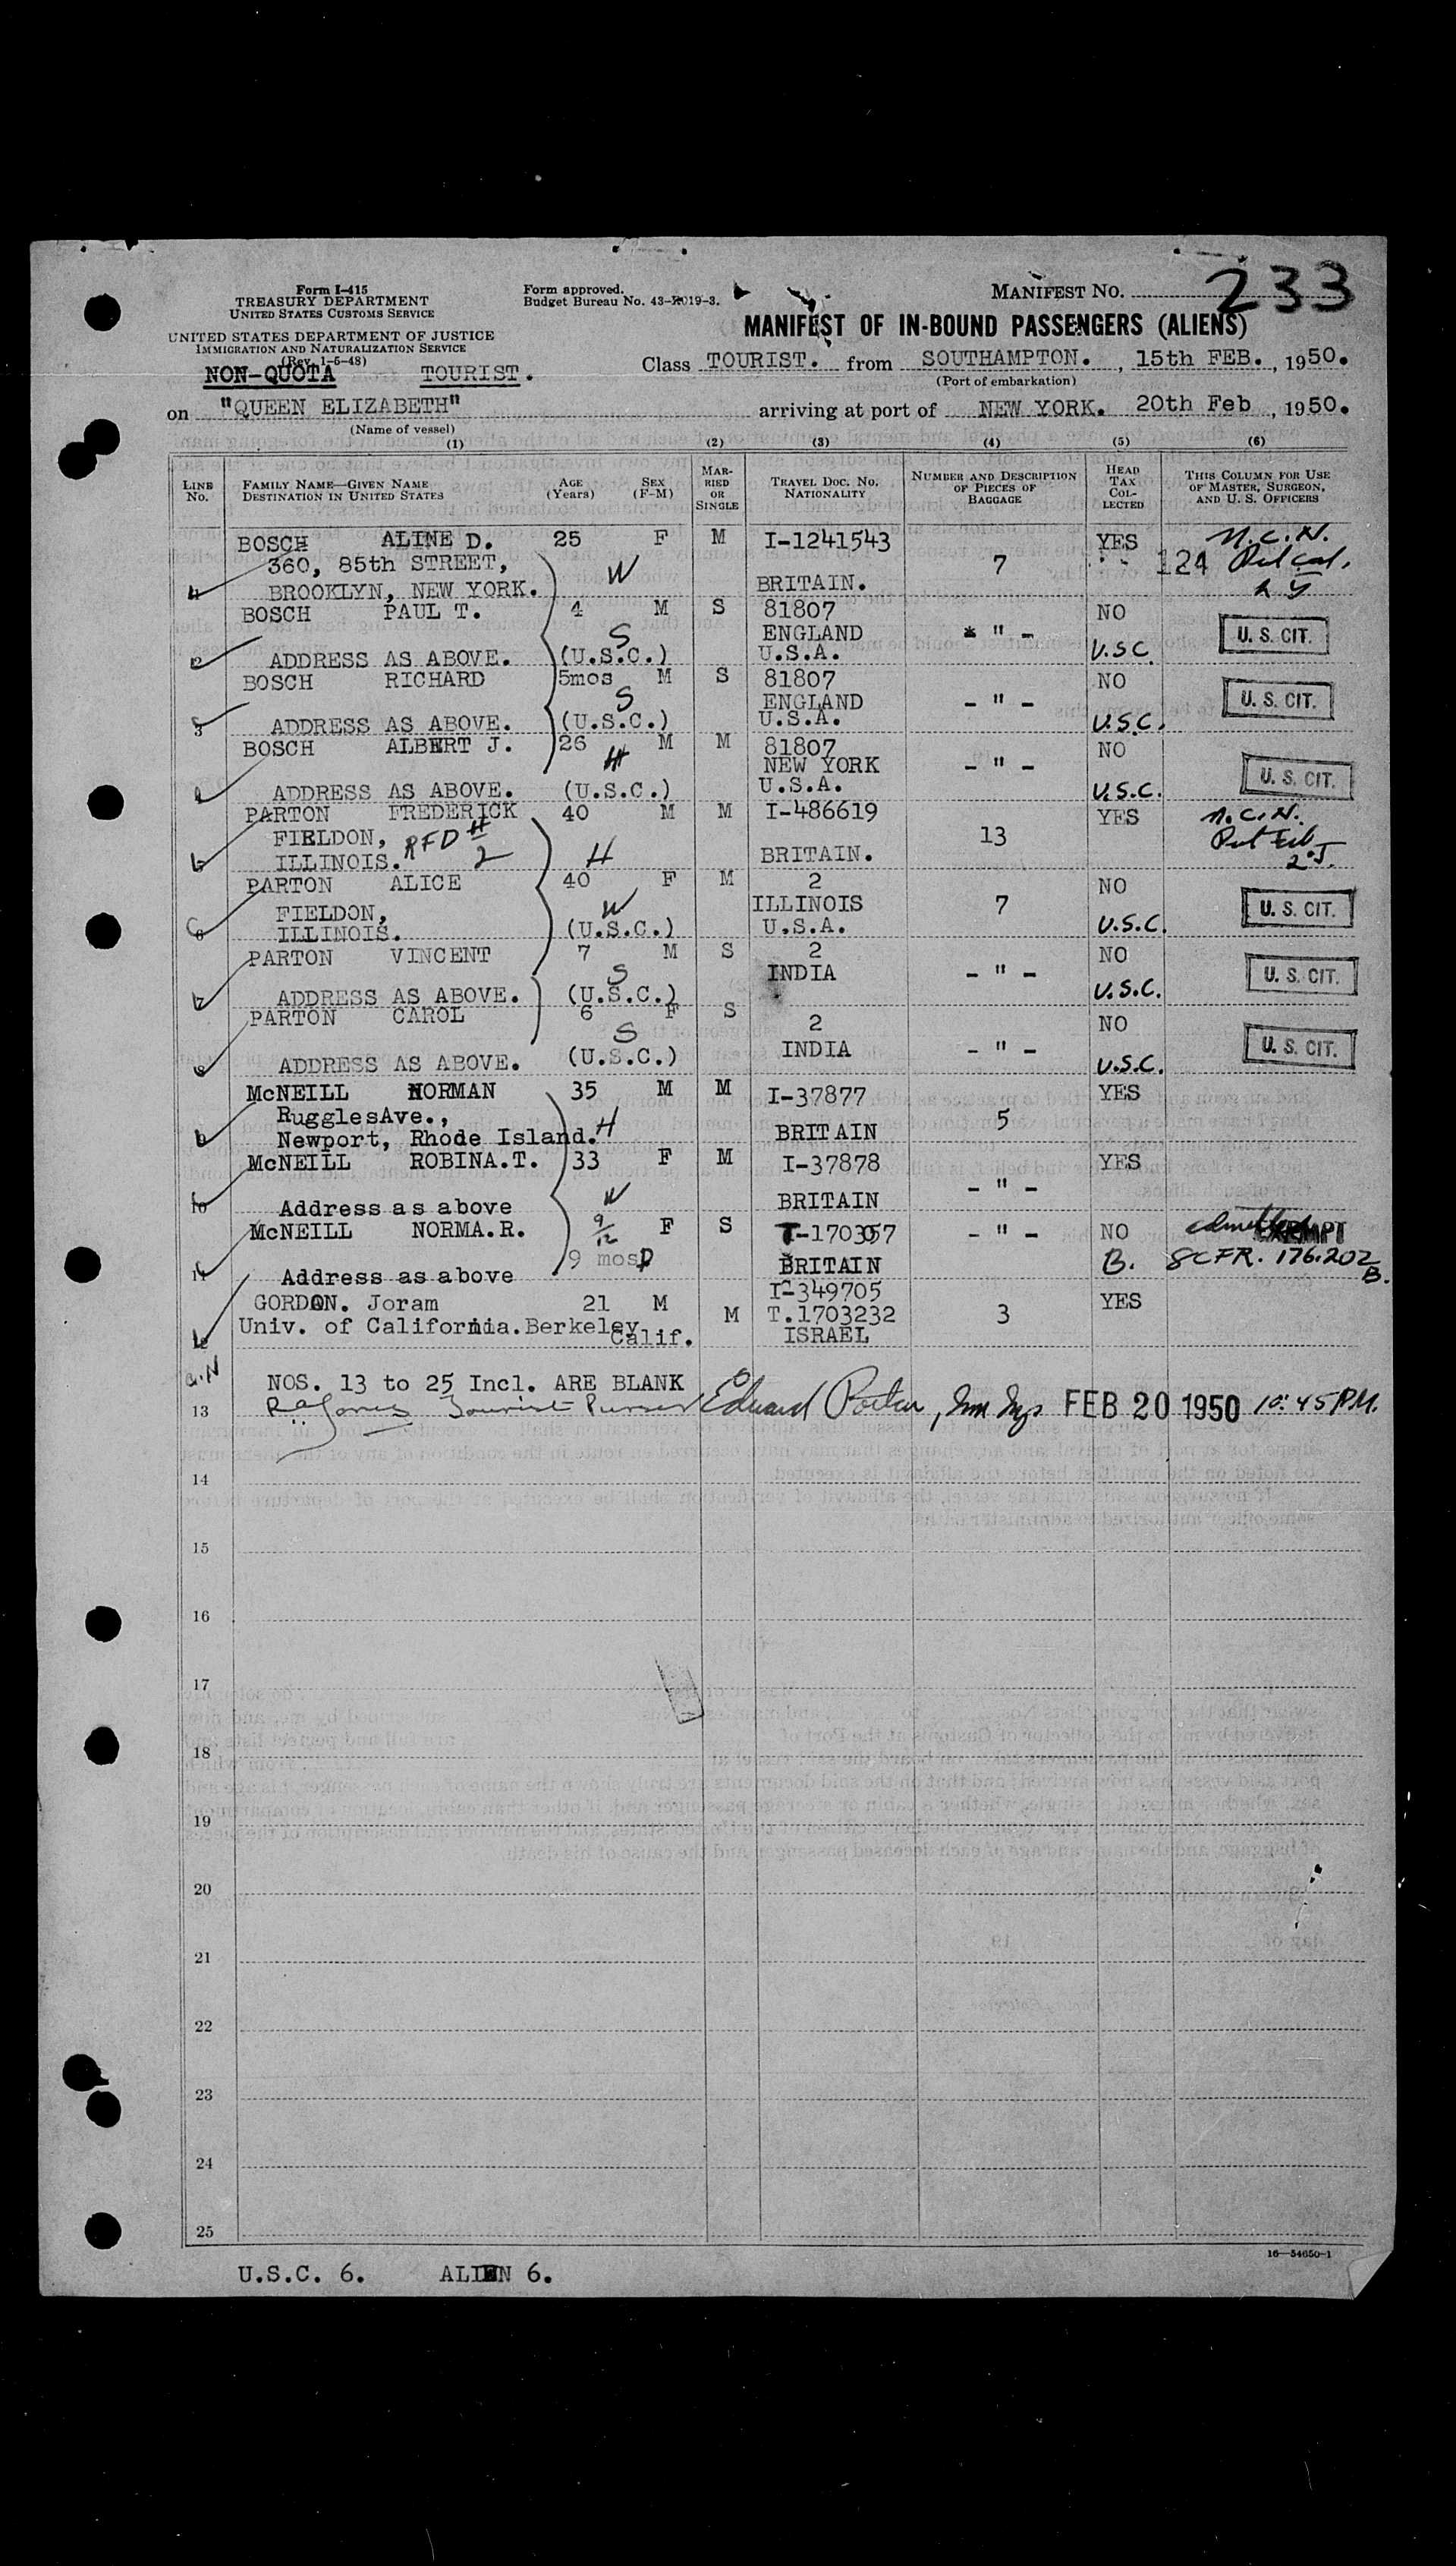 233
Form I-415
TREASURY DEPARTMENT
UNITED STATES CUSTOMS SERVICE
UNITED STATES DEPARTMENT OF JUSTICE
IMMIGRATION AND NATURALIZATION SERVICE
(Rev. 1-5-48)
Form approved.
Budget Bureau No. 43-R019-3.
MANIFEST NO.
MANIFEST OF IN-BOUND PASSENGERS (ALIENS)
NON-QUOTA TOURIST.
Class TOURIST. from SOUTHAMPTON., 15th FEB., 1950.
(Port of embarkation)
on "QUEEN ELIZABETH" arriving at port of NEW YORK. 20th Feb, 1950.
(Name of vessel)
(1) (2) (3) (4) (5) (6)
LINE No. FAMILY NAME—GIVEN NAME DESTINATION IN UNITED STATES AGE (Years) SEX (F-M) MARRIED OR SINGLE TRAVEL DOC. NO. NATIONALITY NUMBER AND DESCRIPTION OF PIECES OF BAGGAGE HEAD TAX COLLECTED THIS COLUMN FOR USE OF MASTER, SURGEON, AND U. S. OFFICERS
BOSCH ALINE D. 25 F M I-1241543 YES N.C.N.
360, 85th STREET, W 7 124
BROOKLYN, NEW YORK. BRITAIN.
BOSCH PAUL T. 4 M S 81807 NO
S ENGLAND " - U. S. CIT.
2 ADDRESS AS ABOVE. (U.S.C.) U.S.A. U.S.C.
BOSCH RICHARD 5mos M S 81807 NO
S ENGLAND - " - U. S. CIT.
3 ADDRESS AS ABOVE. (U.S.C.) U.S.A. U.S.C.
BOSCH ALBERT J. 26 M M 81807 NO
H NEW YORK - " - U. S. CIT.
ADDRESS AS ABOVE. (U.S.C.) U.S.A. U.S.C.
PARTON FREDERICK 40 M M I-486619 YES N.C.N.
FIELDON, RFD # 2 13
ILLINOIS. H BRITAIN.
PARTON ALICE 40 F M 2 NO
FIELDON, W ILLINOIS 7 U. S. CIT.
6 ILLINOIS. (U.S.C.) U.S.A. U.S.C.
PARTON VINCENT 7 M S 2 NO
S INDIA - " - U. S. CIT.
7 ADDRESS AS ABOVE. (U.S.C.) U.S.C.
PARTON CAROL 6 F S 2 NO
S INDIA - " - U. S. CIT.
8 ADDRESS AS ABOVE. (U.S.C.) U.S.C.
McNEILL NORMAN 35 M M I-37877 YES
RugglesAve., H 5
Newport, Rhode Island. BRITAIN
McNEILL ROBINA.T. 33 F M I-37878 YES
W - " -
10 Address as above BRITAIN
McNEILL NORMA.R. 9/12 F S - " - NO EXEMPT
11 Address as above 9 mos D BRITAIN B. 8CFR. 176.202 B.
GORDON. Joram 21 M M I-349705 YES
Univ. of California.Berkeley Calif. T.1703232 3
ISRAEL
NOS. 13 to 25 Incl. ARE BLANK
13 Tourist Purser Edward Porter, Imm Insp FEB 20 1950 10:45 P.M.
14
15
16
17
18
19
20
21
22
23
24
25
16—54650-1
U.S.C. 6. ALIEN 6.